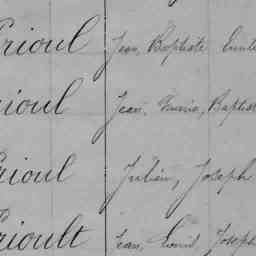 rioul Jean, Baptiste
rioul Jean, Marie, Baptis
rioul Julien, Joseph
rioult Jean, Louis, Joseph